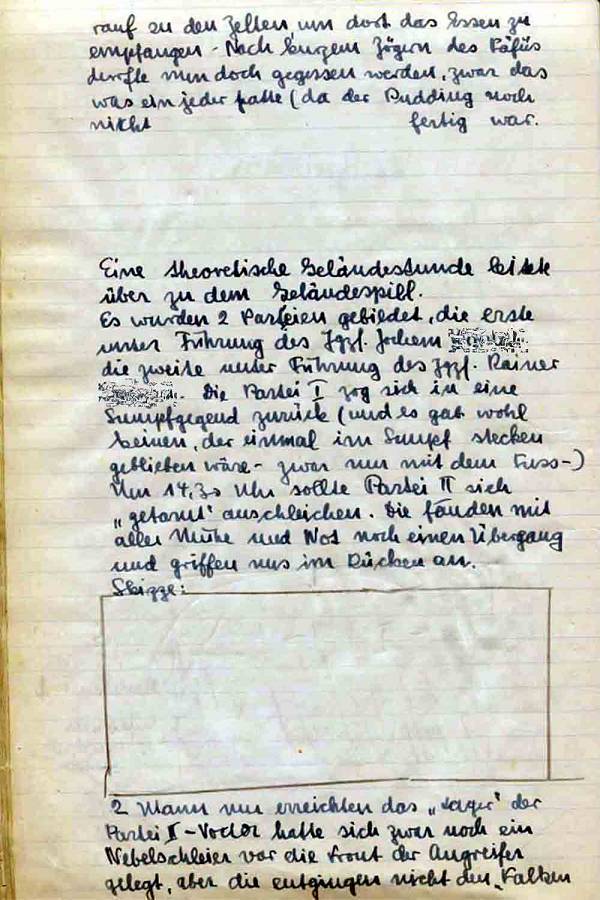 rauf zu den Zelten, um dort das Essen zu
empfangen. Nach kurzem Zögern des Fäfüs
durfte nun doch gegessen werden, zwar das
was ein jeder hatte (da der Pudding noch
nicht fertig war.
Eine theoretische Geländestunde leitete
über zu dem Geländespiel.
Es wurden 2 Parteien gebildet, die erste
unter Führung des Jgzf. Jochem
die zweite unter Führung des Jgzf. Rainer
Die Partei I zog sich in eine
Sumpfgegend zurück (und es gab wohl
keinen, der einmal im Sumpf stecken
geblieben wäre - zwar nur mit dem Fuss-)
Um 14,30 Uhr sollte Partei II sich
„getarnt" anschleichen. Die fanden mit
aller Mühe und Not noch einen Übergang
und griffen uns im Rücken an.
Skizze:
2 Mann nur erreichten das „Lager" der
Partei II - hatte sich zwar noch ein
Nebelschleier vor die Front der Angreifer
gelegt, aber die entgingen nicht den „Falken